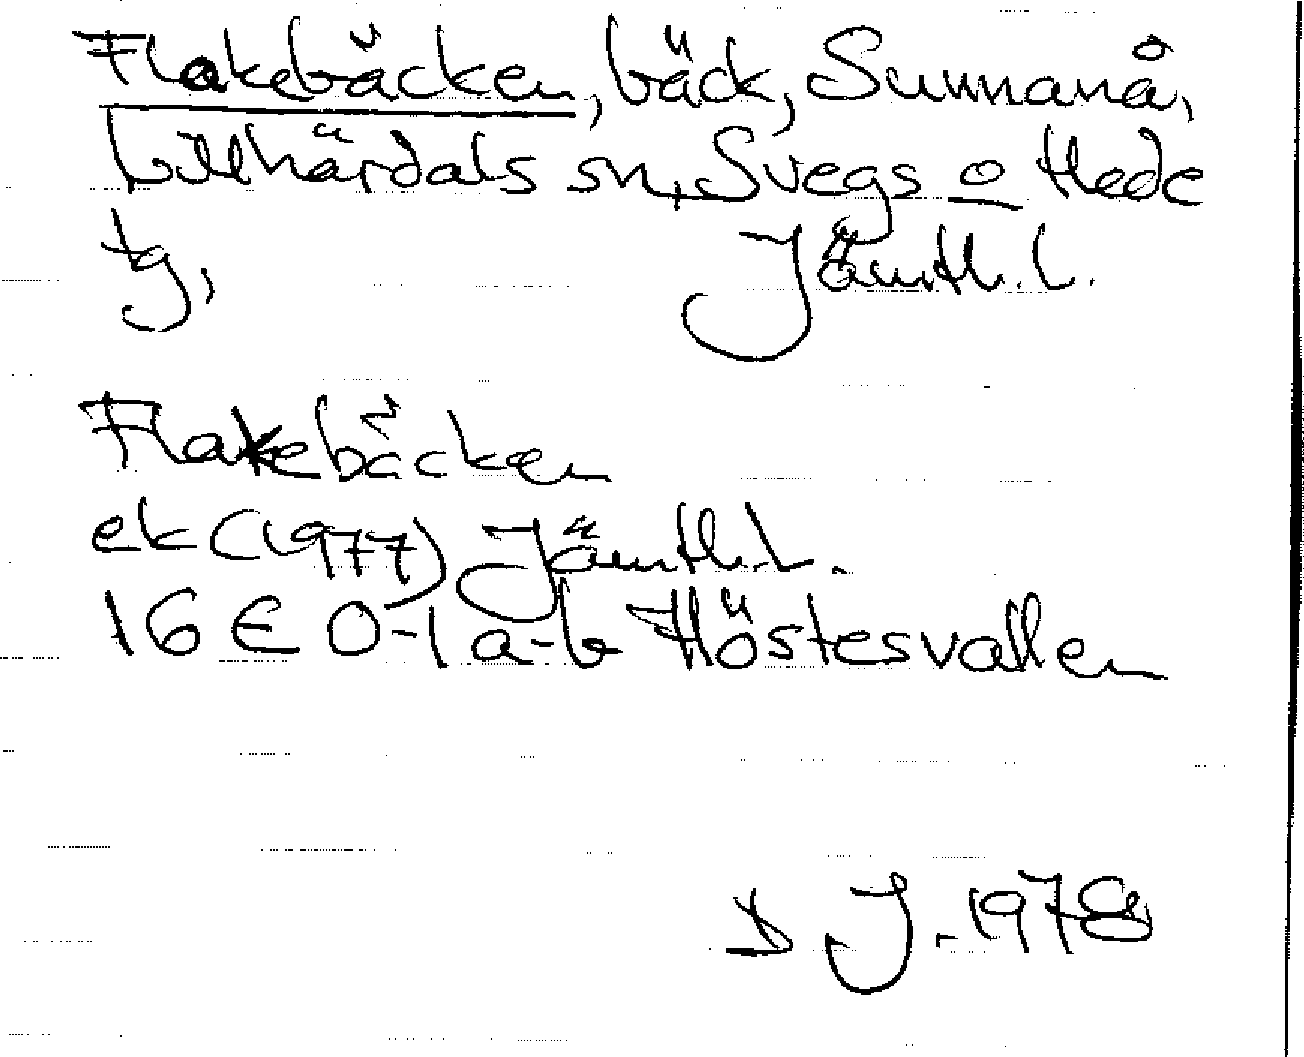 Flakebäcken, bäck, Sunnanå,
Lillhärdals sn, Svegs o Hede
tg, Jämtl. l.
Flakebäcken
ek (1977) Jämtl. l.
16 E 0-1 a-b Höstesvallen
D J. 1978